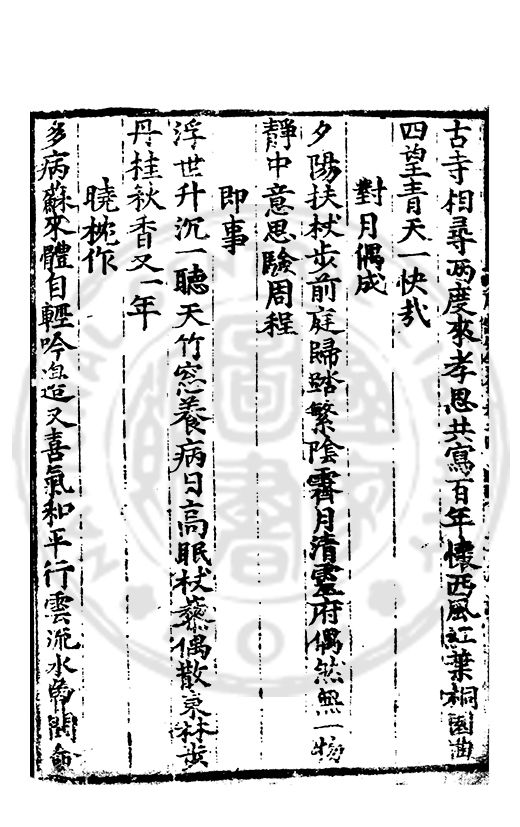 古寺相尋兩度來孝思共寫百年懷西風紅葉桐園曲
四望青天一快哉
對月偶成
夕陽扶杖步前庭歸踏繁陰霽月清靈府偶然無一物
靜中意思驗周程
即事
浮世升沉一聽天竹窓養病日高眠杖藜偶散東林步
丹桂秋香又一年
曉枕作
多病蘇來體自輕吟邊又喜氣和平行雲流水